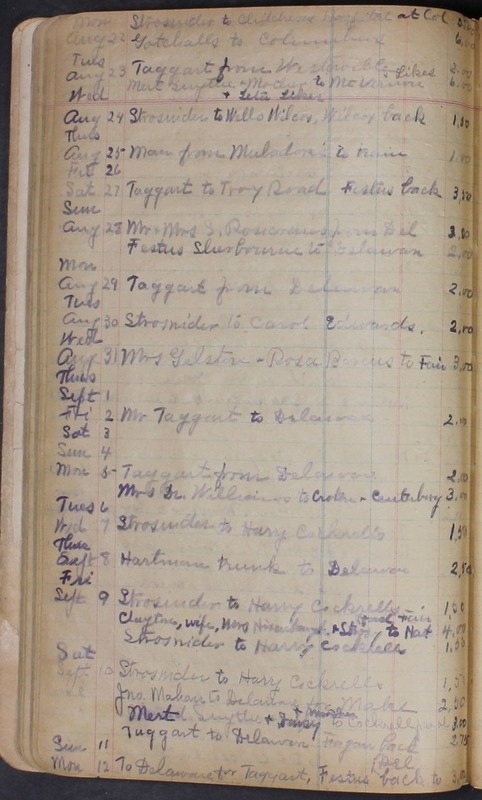 Mon Strosnider to Childrens Hospital at Col
Aug 22 Gotchalls to Columbus 6.00
Tues
Aug 23 Taggart from Westerville 2.00
Wed Mert Smythe + Mother to Mt Vernon + Likes
+ Leta Likes
Aug 24 Strosnider to Wells Wilcox, Wilcox back 1.50
Thus
Aug 25 Man from to train 1.00
Fri 26
Sat 27 Taggart to Troy Road Festus back 3.50
Sun
Aug 28 Mr + Mrs S. Rosecrans from Del 3.00
Festus Sherbourne to Delawan 2.00
Mon
Aug 29 Taggart from Delawan 2.00
Tues
Aug 30 Strosnider to Carol Edwards. 2.00
Wed
Aug 31 Mrs Gelston - Rosa to Fair 3.00
Thus
Sept 1
Fri 2 Mr Taggart to Delaware 2.00
Sat 3
Sun 4
Mon 5 Taggart from Delawan 2.00
Mrs Dr. Williams to Croton - Centerburg 3.00
Tues 6
Wed 7 Strosnider to Harry Cockrells 1.50
Thus
Sept 8 Hartman trunk to Delaware 2.50
Fri
Sept 9 Strosnider to Harry Cockrells 1.50
Clayton, wife, Mrs + Stros to Hart 4.00
Strosnider to Harry Cockrells 1.50
Sat
Sept 10 Strosnider to Harry Cockrells 1.50
Jno. Mahan to Delaware 2.50
Mert Smythe + to Cockrell 3.00
Taggart to Delawan Fagan back 2.75
Sun 11 Del
Mon 12 To Delaware for Taggart, Festus back to